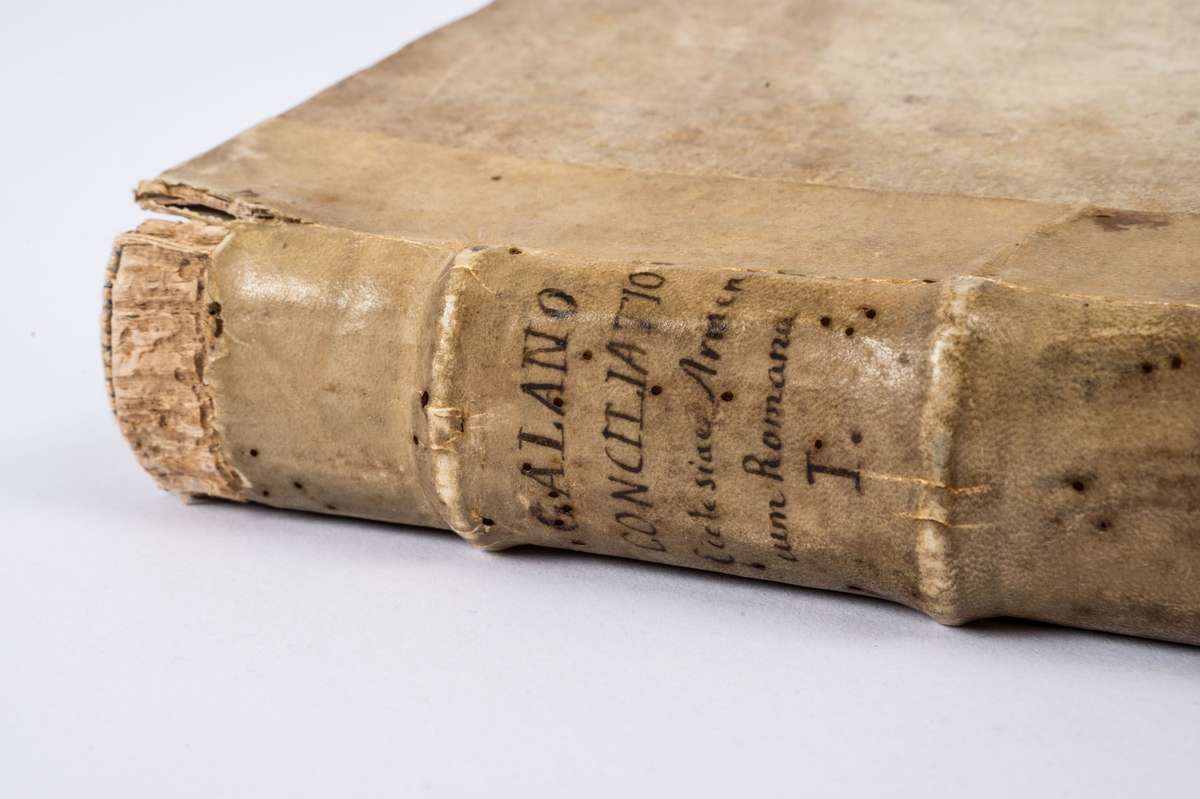 GALANO
CONCILIATIO
Ecclesiae Armen
cum Romana
T.